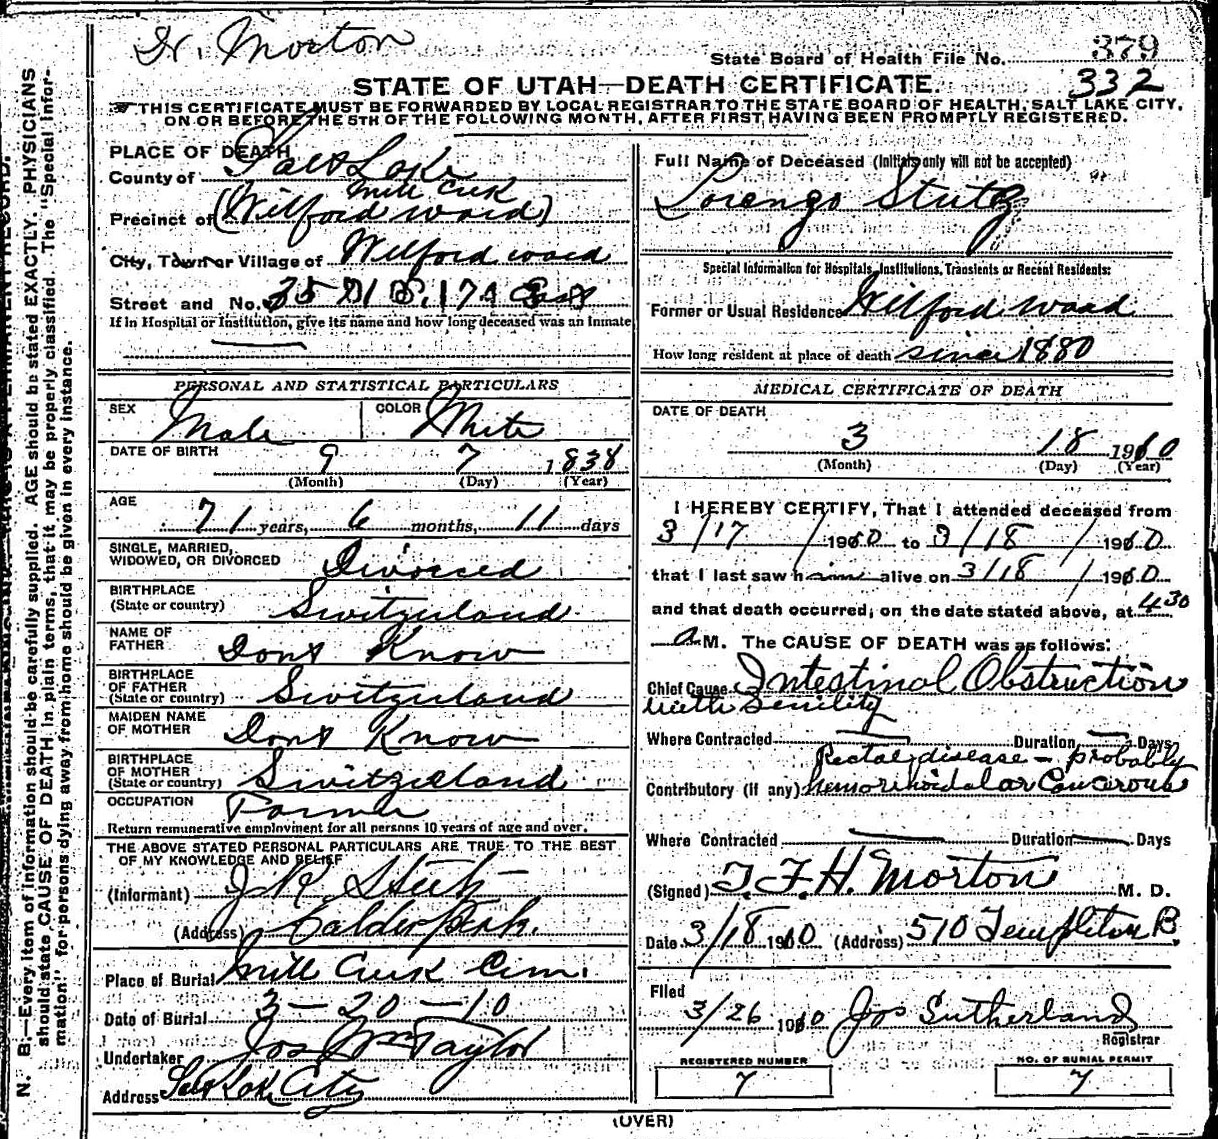 Dr. Morton
State Board of Health File No. 379
STATE OF UTAH—DEATH CERTIFICATE. 332
THIS CERTIFICATE MUST BE FORWARDED BY LOCAL REGISTRAR TO THE STATE BOARD OF HEALTH, SALT LAKE CITY,
ON OR BEFORE THE 5TH OF THE FOLLOWING MONTH, AFTER FIRST HAVING BEEN PROMPTLY REGISTERED.
N. B.—Every item of information should be carefully supplied. AGE should be stated EXACTLY. PHYSICIANS
should state CAUSE OF DEATH in plain terms, that it may be properly classified. The "Special Infor-
mation" for persons dying away from home should be given in every instance.
PLACE OF DEATH
County of Salt Lake
Mill Crek
Precinct of (Wilford ward)
City, Town or Village of Wilford ward
Street and No. East
If in Hospital or Institution, give its name and how long deceased was an inmate
PERSONAL AND STATISTICAL PARTICULARS
SEX Male COLOR White
DATE OF BIRTH 9 7 1838
(Month) (Day) (Year)
AGE
71 years, 6 months, 11 days
SINGLE, MARRIED,
WIDOWED, OR DIVORCED Divorced
BIRTHPLACE
(State or country) Switzerland
NAME OF
FATHER Dont Know
BIRTHPLACE
OF FATHER
(State or country) Switzerland
MAIDEN NAME
OF MOTHER Dont Know
BIRTHPLACE
OF MOTHER
(State or country) Switzerland
OCCUPATION Farmer
Return remunerative employment for all persons 10 years of age and over.
THE ABOVE STATED PERSONAL PARTICULARS ARE TRUE TO THE BEST
OF MY KNOWLEDGE AND BELIEF
(Informant)
(Address) Calder Park.
Place of Burial Mill Creek Cem.
Date of Burial 3-20-10
Undertaker Jos Wm Taylor
Address Salt Lake City
Full Name of Deceased (Initials only will not be accepted)
Lorenzo Stutz
Special Information for Hospitals, Institutions, Transients or Recent Residents:
Former or Usual Residence Wilford ward
How long resident at place of death since 1880
MEDICAL CERTIFICATE OF DEATH
DATE OF DEATH
3 18 1910
(Month) (Day) (Year)
I HEREBY CERTIFY, That I attended deceased from
3/17/1910 to 3/18/1910
that I last saw him alive on 3/18/1910
and that death occurred, on the date stated above, at 4 30
a M. The CAUSE OF DEATH was as follows:
Chief Cause Intestinal Obstruction
with Senility
Where Contracted — Duration — Days
Rectal disease - probably
Contributory (if any) hemorrhoidal or Cancerous
Where Contracted — Duration — Days
(Signed) T. F. H. Morton M. D.
Date 3/18 1910 (Address) 510 Templeton B.
Filed
3/26 1910 Jos Sutherland
Registrar
REGISTERED NUMBER
7
NO. OF BURIAL PERMIT
7
(OVER)